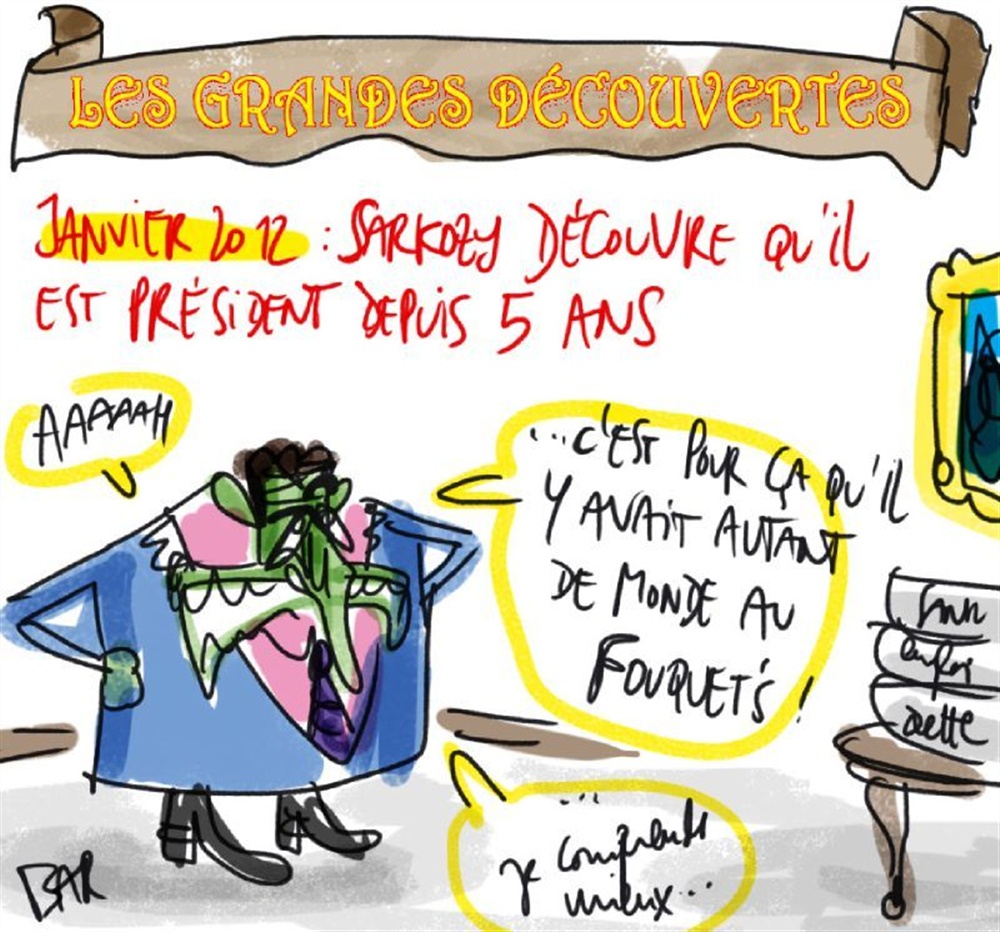 LES GRANDES DÉCOUVERTES
JANVIER 2012 : SARKOZY DÉCOUVRE QU'iL
EST PRÉSIDENT DEPUIS 5 ANS
AAAAAH
...C'EST POUR ÇA QU'IL
Y AVAIT AUTANT
DE MONDE AU
FOUQUET'S !
...
je comprends
mieux...
emploi
dette
BAR